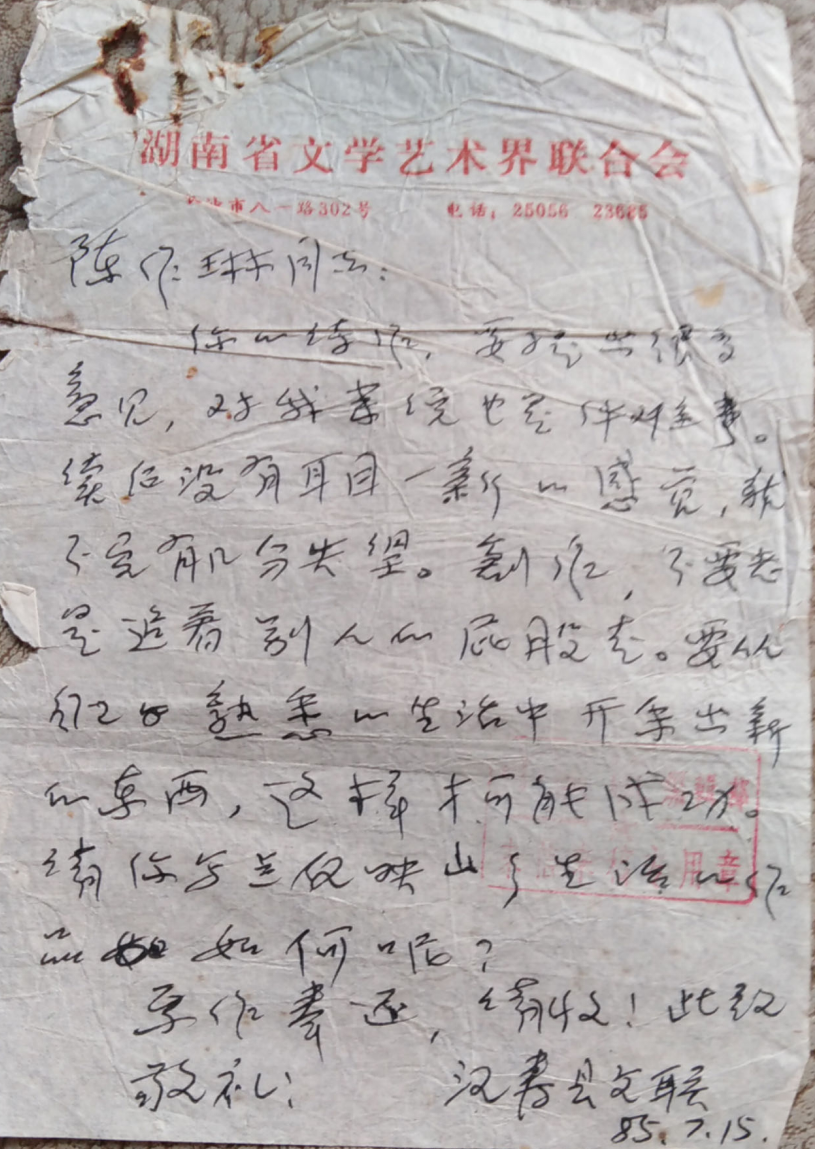 湖南省文学艺术界联合会
长沙市八一路302号 电话：25056 23685
陈作琳同志：
你的诗作，要提出很多
意见，对我来说也是件难事。
读后没有耳目一新的感觉，就
不免有几分失望。创作，不要老
是追着别人的屁股走。要从
自己熟悉的生活中开采出新
的东西，这样才可能成功。
请你写点反映山乡生活的作
品如何呢？
原作奉还，请收！此致
敬礼！ 汉寿县文联
85.7.15.
用章